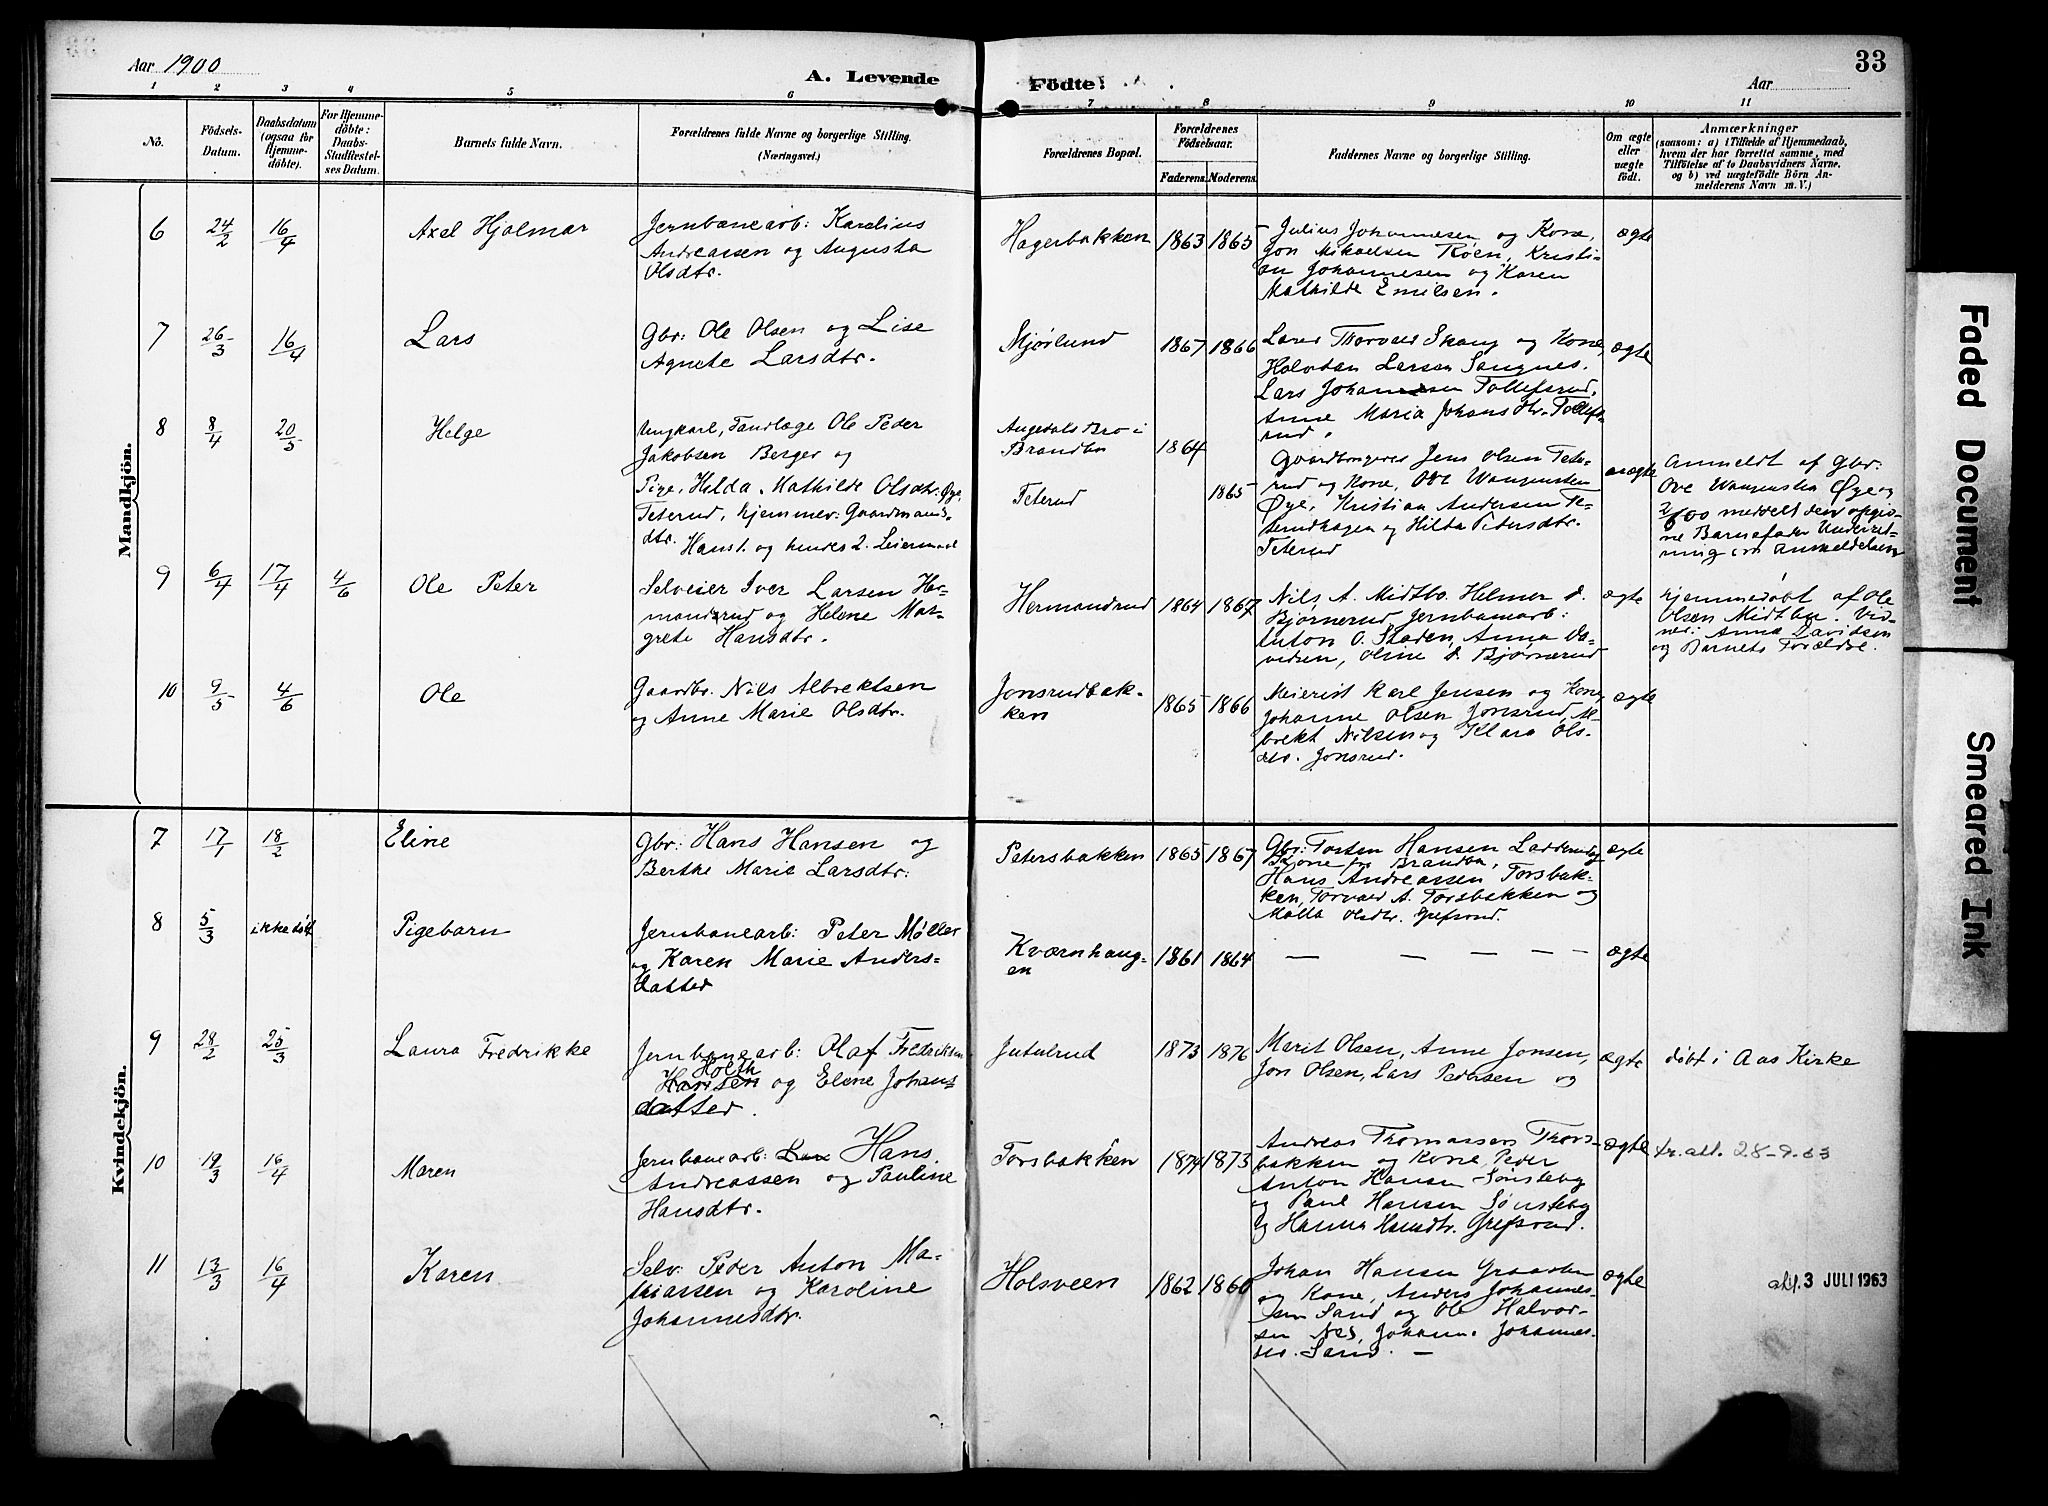 Aar 1900
A. Levende
Födte.
Aar
33
1 2 3 4 5 6 7 8 9 10 11
No.
Födsels-
Datum.
Daabsdatum
(ogsaa for
Hjemme-
döbte).
For Hjemme-
döbte:
Daabs-
Stadfæstel-
ses Datum.
Barnets fulde Navn.
Forældrenes fulde Navne og borgerlige Stilling.
(Næringsvei.)
Forældrenes Bopæl.
Forældrenes
Födselsaar.
Faderens. Moderens.
Faddernes Navne og borgerlige Stilling.
Om ægte
eller
uægte
födt.
Anmærkninger
(saasom: a) i Tilfælde af Hjemmedaab,
hvem der har forrettet samme, med
Tilföielse af to Daabsvidners Navne.
og b) ved uægtefödte Börn An-
melderens Navn m. V.)
Mandkjön.
6 24/2 16/4 Axel Hjalmar
Jernbanearb: Karelius
Andreassen og Augusta
Olsdtr.
Hagerbakken 1863 1865
Julius Johannesen og Kone,
Jon Mikaelsen Roen, Kristi-
an Johannesen og Karen
Mathilde Emilsen.
ægte
7 26/3 16/4 Lars
Gbr: Ole Olsen og Lise
Agnete Larsdtr.
Mjørlund 1867 1866
Lars Thorvald Skaug og Kone,
Halvdan Larsen Sangnes.
Lars Johansen Tollefsrud,
Anne Maria Johansdtr. Tollefs-
rud.
ægte
8 8/4 20/5 Helge
Ungkarl, Tandlæge Ole Peder
Jakobsen Berger og
Pige, Hilda Mathilde Olsdtr: Øye,
Teterud, hjemmev: Gaardmands-
dtr. Hans 1. og hendes 2. Leiermaal
Augedals Bro i
Brandbu 1864
Teterud 1865
Gaardbruger Jens Olsen Tete-
rud og Kone, Ove Wangensten
Øye, Kristian Andersen Te-
terudhagen og Hilda Pedersdtr.
Teterud
uægte
Anmeldt af Gbr:
Ove Wangensten Øye og
2/6 00 meddelt den opgiv-
ne Barnefader Underret-
ning om Anmeldelsen
9 6/4 17/4 4/6 Ole Peter
Selveier Iver Larsen Her-
mandsrud og Helene Mar-
grete Hansdtr.
Hermandrud 1864 1867
Nils A. Midtbo. Helmer d.
Bjørnerud, Jernbanearb:
Anton O. Staden, Anna Da-
vidsen, Oline d. Bjørnerud
ægte
hjemmedøbt af Ole
Olsen Midtbo. Vid-
ner: Anna Davidsen
og Barnets Forældre.
10 9/5 4/6 Ole
Gaardbr. Nils Albrektsen
og Anne Marie Olsdtr.
Jonsrudbak-
ken 1865 1866
Meierist Karl Jensen og Kone
Johanne Olsen Jonsrud, Al-
brekt Nilsen og Klara Ols-
dtr. Jonsrud.
ægte
Kvindekjön.
7 17/1 18/2 Eline
Gbr: Hans Hansen og
Berthe Marie Larsdtr:
Petersbakken 1865 1867
Gbr: Torsten Hansen
Kone fra Brandbu,
Hans Andreassen, Torsbak-
ken, Torvald A. Torsbakken og
Malla Olsdtr. Grefsrud.
ægte
8 5/3 ikke døbt Pigebarn
Jernbanearb: Peter Møller
og Karen Marie Anders-
datter
Kværnhaug-
en 1861 1864
— — — — —
ægte
9 28/2 25/3 Laura Fredrikke
Jernbanearb: Olaf Fredriksen
Holth
Hansen og Elene Johans-
datter.
Jutulrud 1873 1876
Marit Olsen, Anne Jonsen,
Jon Olsen, Lars Pedersen og
ægte døbt i Aas Kirke
10 19/3 16/4 Maren
Jernbanearb: Hans
Andreassen og Pauline
Hansdtr.
Torsbakken 1874 1873
Andreas Thomassen Thors-
bakken og Kone, Peder
Anton Hansen Sønsteby
og Paul Hansen Sønsteby
og Hanna Hansdtr. Grefsrud.
ægte tr.att. 28-9.63
11 13/3 16/4 Karen
Selv: Peder Anton Ma-
thiassen og Karoline
Johannesdtr.
Holsveen 1862 1860
Johan Hansen
og Kone, Anders Johannes-
sen Sand og Ole Halvor-
sen Nes, Johanne Johannes-
dtr. Sand. —
ægte
3 JULI 1963
Faded Document
Smeared Ink